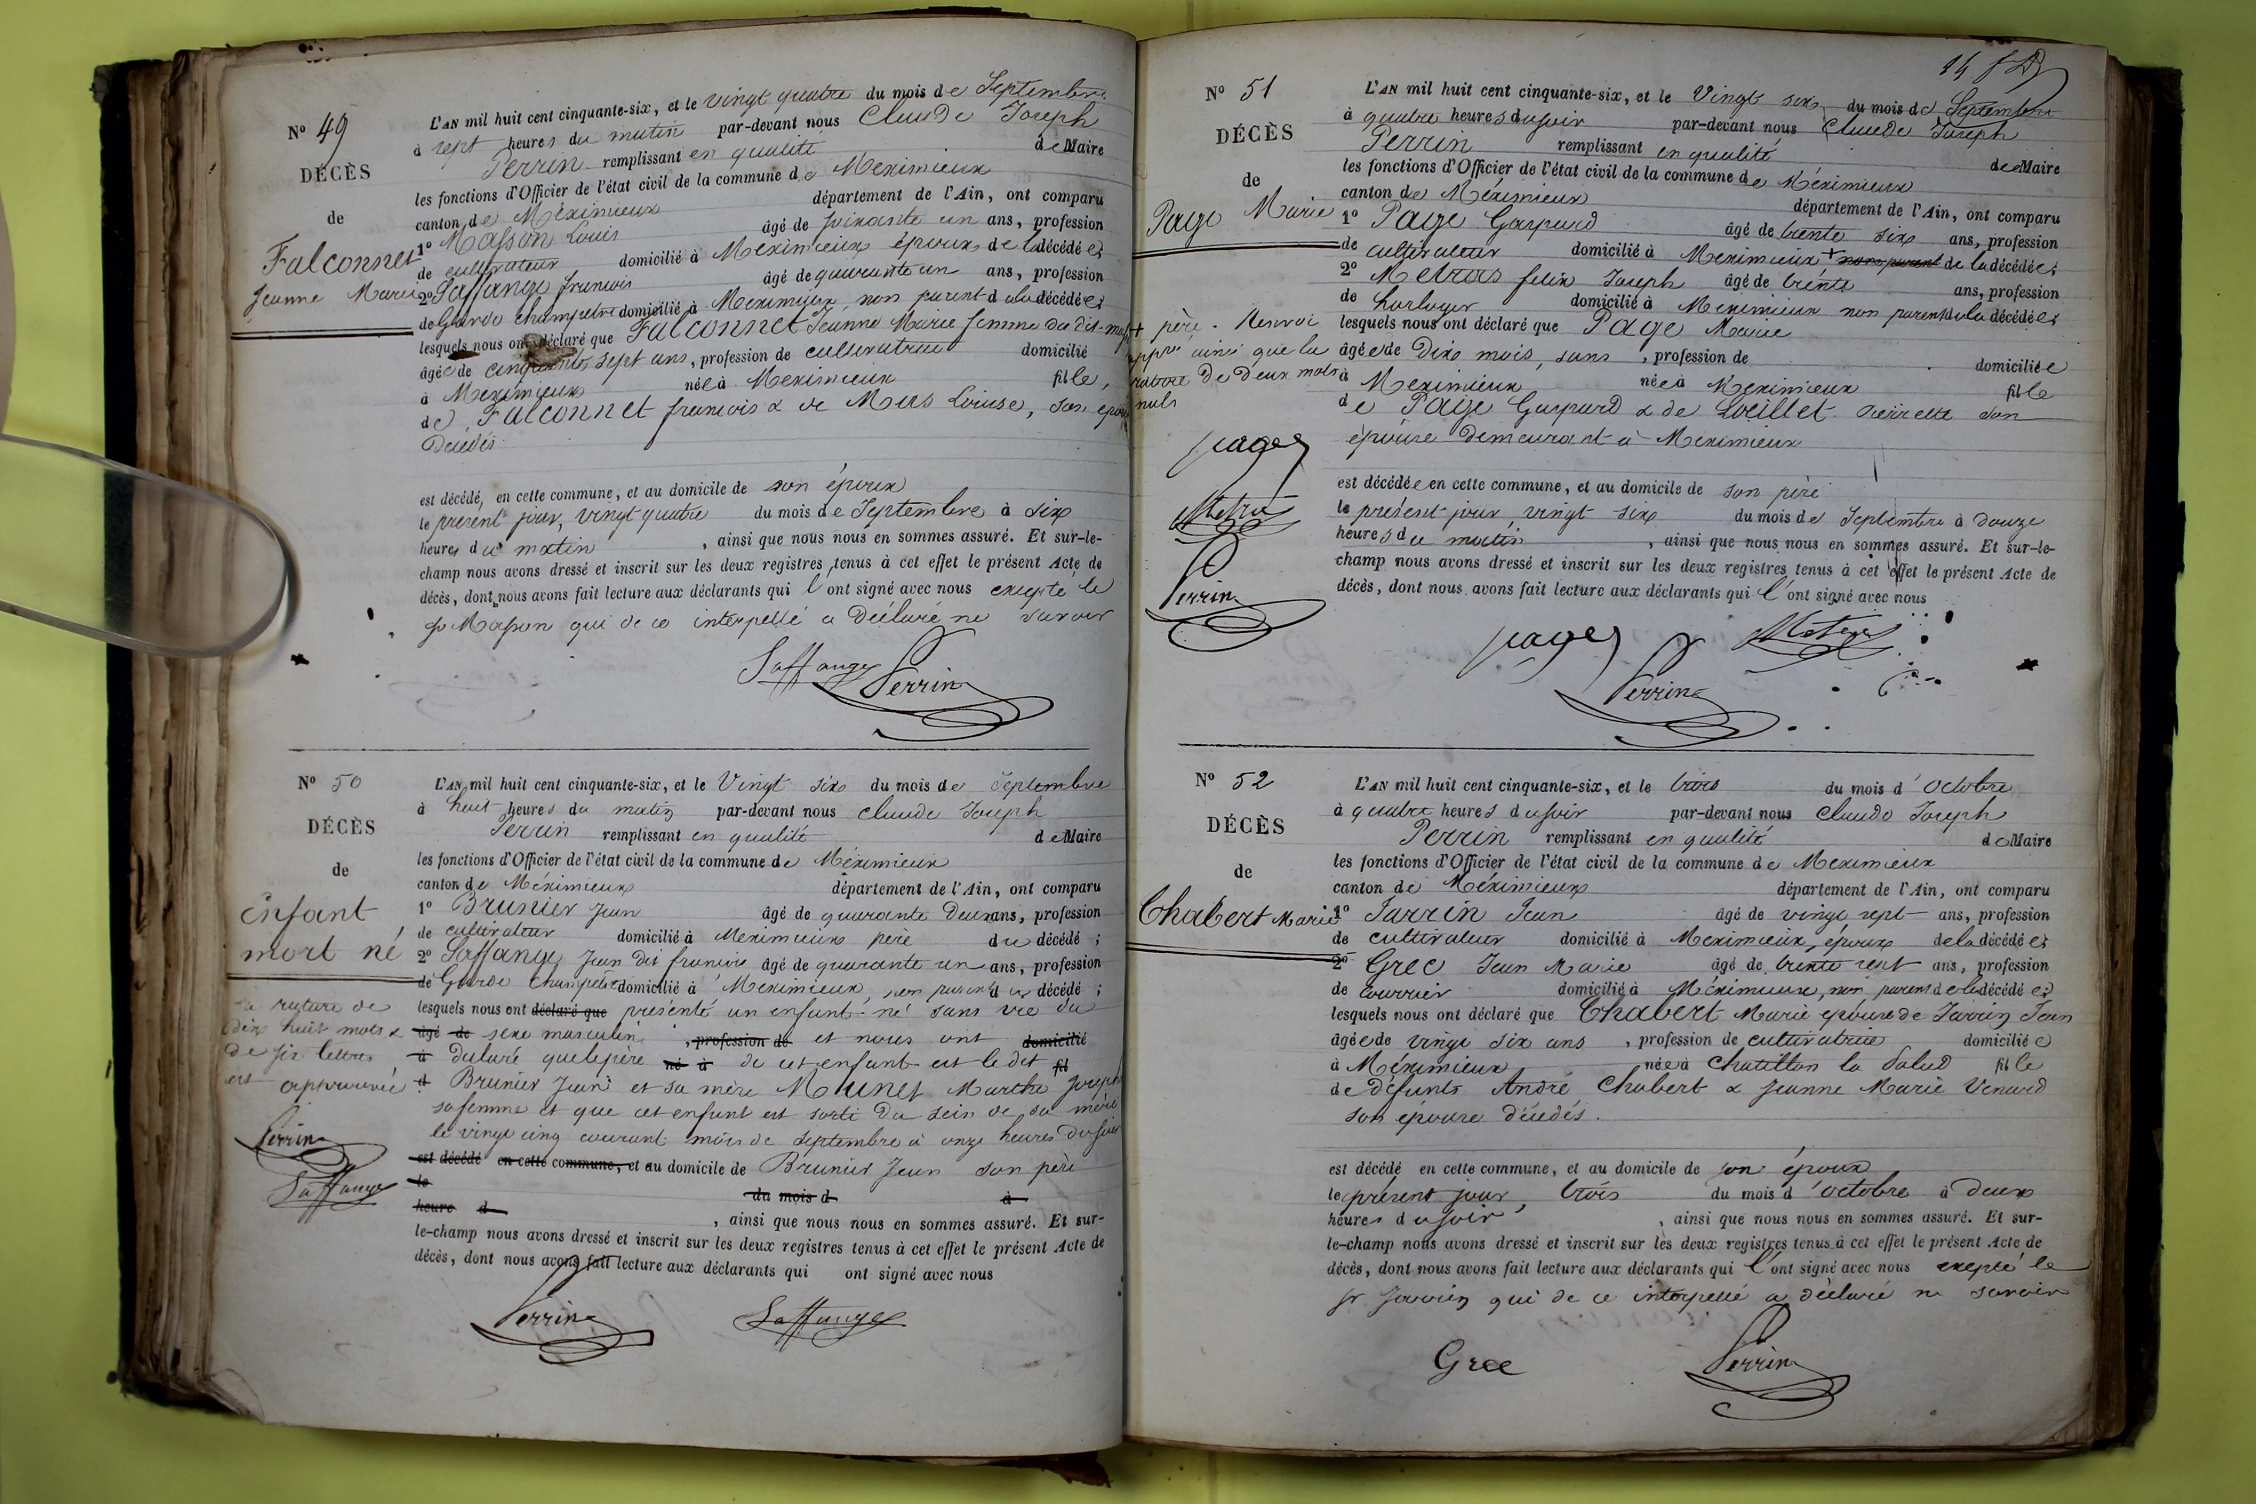 Nº 49
DÉCÈS
de
Falconnet
Jeanne Marie
L'AN mil huit cent cinquante-six, et le vingt quatre du mois de Septembre
à sept heures du matin par-devant nous Claude Joseph
Perrin remplissant en qualité de Maire
les fonctions d'Officier de l'état civil de la commune de Meximieux
canton de Méximieux département de l'Ain, ont comparu
1º Masson Louis âgé de soixante un ans, profession
de cultivateur domicilié à Meximieux époux de la décédée;
2º Saffange francois âgé de quarante un ans, profession
de Garde champetre domicilié à Meximieux, non parent de la décédée;
lesquels nous ont déclaré que Falconnet Jeanne Marie femme du dit
âgée de cinquante sept ans, profession de cultivatrice domicilié
à Meximieux née à Meximieux fille,
de Falconnet francois & de Mers Louise, son
Décédés
est décédé, en cette commune, et au domicile de son époux
le présent jour, vingt quatre du mois de Septembre à six
heures du matin, ainsi que nous nous en sommes assuré. Et sur-le-
champ nous avons dressé et inscrit sur les deux registres tenus à cet effet le présent Acte de
décès, dont nous avons fait lecture aux déclarants qui l'ont signé avec nous excepté le
sr Masson qui de ce interpellé a déclaré ne savoir
Saffange Perrin
Nº 50
DÉCÈS
de
Enfant
mort né
la rature de
dix huit mots &
de six lettres
est approuvée
Perrin
Saffange
L'AN mil huit cent cinquante-six, et le Vingt six du mois de Septembre
à huit heures du matin par-devant nous Claude Joseph
Perrin remplissant en qualité de Maire
les fonctions d'Officier de l'état civil de la commune de Méximieux
canton de Méximieux département de l'Ain, ont comparu
1º Brunier Jean âgé de quarante deux ans, profession
de cultivateur domicilié à Meximieux père du décédé;
2º Saffange Jean dit francois âgé de quarante un ans, profession
de Garde Champêtre domicilié à Meximieux, non parent du décédé;
lesquels nous ont déclaré que présenté un enfant né sans vie du
âgé de sexe masculin, profession de et nous ont domicilié
à déclaré que le père né à de cet enfant est le dit fil
d Brunier Jean et sa mère Munet Marthe Josephte
sa femme et que cet enfant est sorti du sein de sa mère
le vingt cinq courant mois de septembre à onze heures du soir
est décédé en cette commune, et au domicile de Brunier Jean son père
le du mois d à
heure d, ainsi que nous nous en sommes assuré. Et sur-
le-champ nous avons dressé et inscrit sur les deux registres tenus à cet effet le présent Acte de
décès, dont nous avons fait lecture aux déclarants qui ont signé avec nous
Perrin Saffange
14
Nº 51
DÉCÈS
de
Page Marie
+ père. Renvoi
appvé ainsi que la
rature de deux mots
nuls
pages
Metra
Perrin
L'AN mil huit cent cinquante-six, et le Vingt six du mois de Septembre
à quatre heures du soir par-devant nous Claude Joseph
Perrin remplissant en qualité de Maire
les fonctions d'Officier de l'état civil de la commune de Méximieux
canton de Méximieux département de l'Ain, ont comparu
1º Page Gaspard âgé de trente six ans, profession
de cultivateur domicilié à Meximieux + non parent de la décédée;
2º Metras felix Joseph âgé de trente ans, profession
de horloger domicilié à Meximieux non parent de la décédée;
lesquels nous ont déclaré que Page Marie
âgée de Dix mois, sans, profession de domiciliée
à Meximieux née à Meximieux fille
de Page Gaspard & de Loeillet Pierrette son
épouse demeurant à Meximieux
est décédée en cette commune, et au domicile de son père
le présent jour vingt six du mois de Septembre à douze
heures du matin, ainsi que nous nous en sommes assuré. Et sur-le-
champ nous avons dressé et inscrit sur les deux registres tenus à cet effet le présent Acte de
décès, dont nous avons fait lecture aux déclarants qui l'ont signé avec nous
pages Metra
Perrin
Nº 52
DÉCÈS
de
Chabert Marie
L'AN mil huit cent cinquante-six, et le trois du mois d'octobre
à quatre heures du soir par-devant nous Claude Joseph
Perrin remplissant en qualité de Maire
les fonctions d'Officier de l'état civil de la commune de Meximieux
canton de Méximieux département de l'Ain, ont comparu
1º Jarrin Jean âgé de vingt sept ans, profession
de cultivateur domicilié à Meximieux, époux de la décédée;
2º Grec Jean Marie âgé de trente sept ans, profession
de domicilié à Méximieux, non parent de la décédée;
lesquels nous ont déclaré que Chabert Marie épouse de Jarrin Jean
âgée de vingt six ans, profession de cultivatrice domiciliée
à Méximieux née à Chatillon la Palud fille
de défunts André Chabert & Jeanne Marie Venard
son épouse décédés.
est décédé en cette commune, et au domicile de son époux
le présent jour, trois du mois d'octobre à deux
heures du soir, ainsi que nous nous en sommes assuré. Et sur-
le-champ nous avons dressé et inscrit sur les deux registres tenus à cet effet le présent Acte de
décès, dont nous avons fait lecture aux déclarants qui l'ont signé avec nous excepté le
sr Jarrin qui de ce interpellé a déclaré ne savoir
Grec Perrin